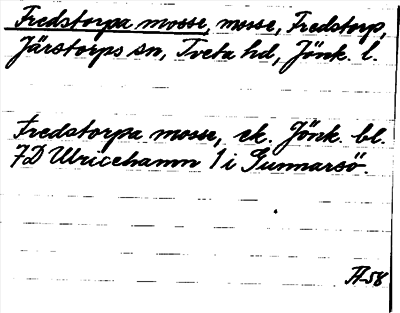 Fredstorpa mosse, mosse, Fredstorp,
Järstorps sn, Tveta hd, Jönk. l.
Fredstorpa mosse, ek. Jönk. bl.
7D Ulricehamn 1 i Gunnarsö.